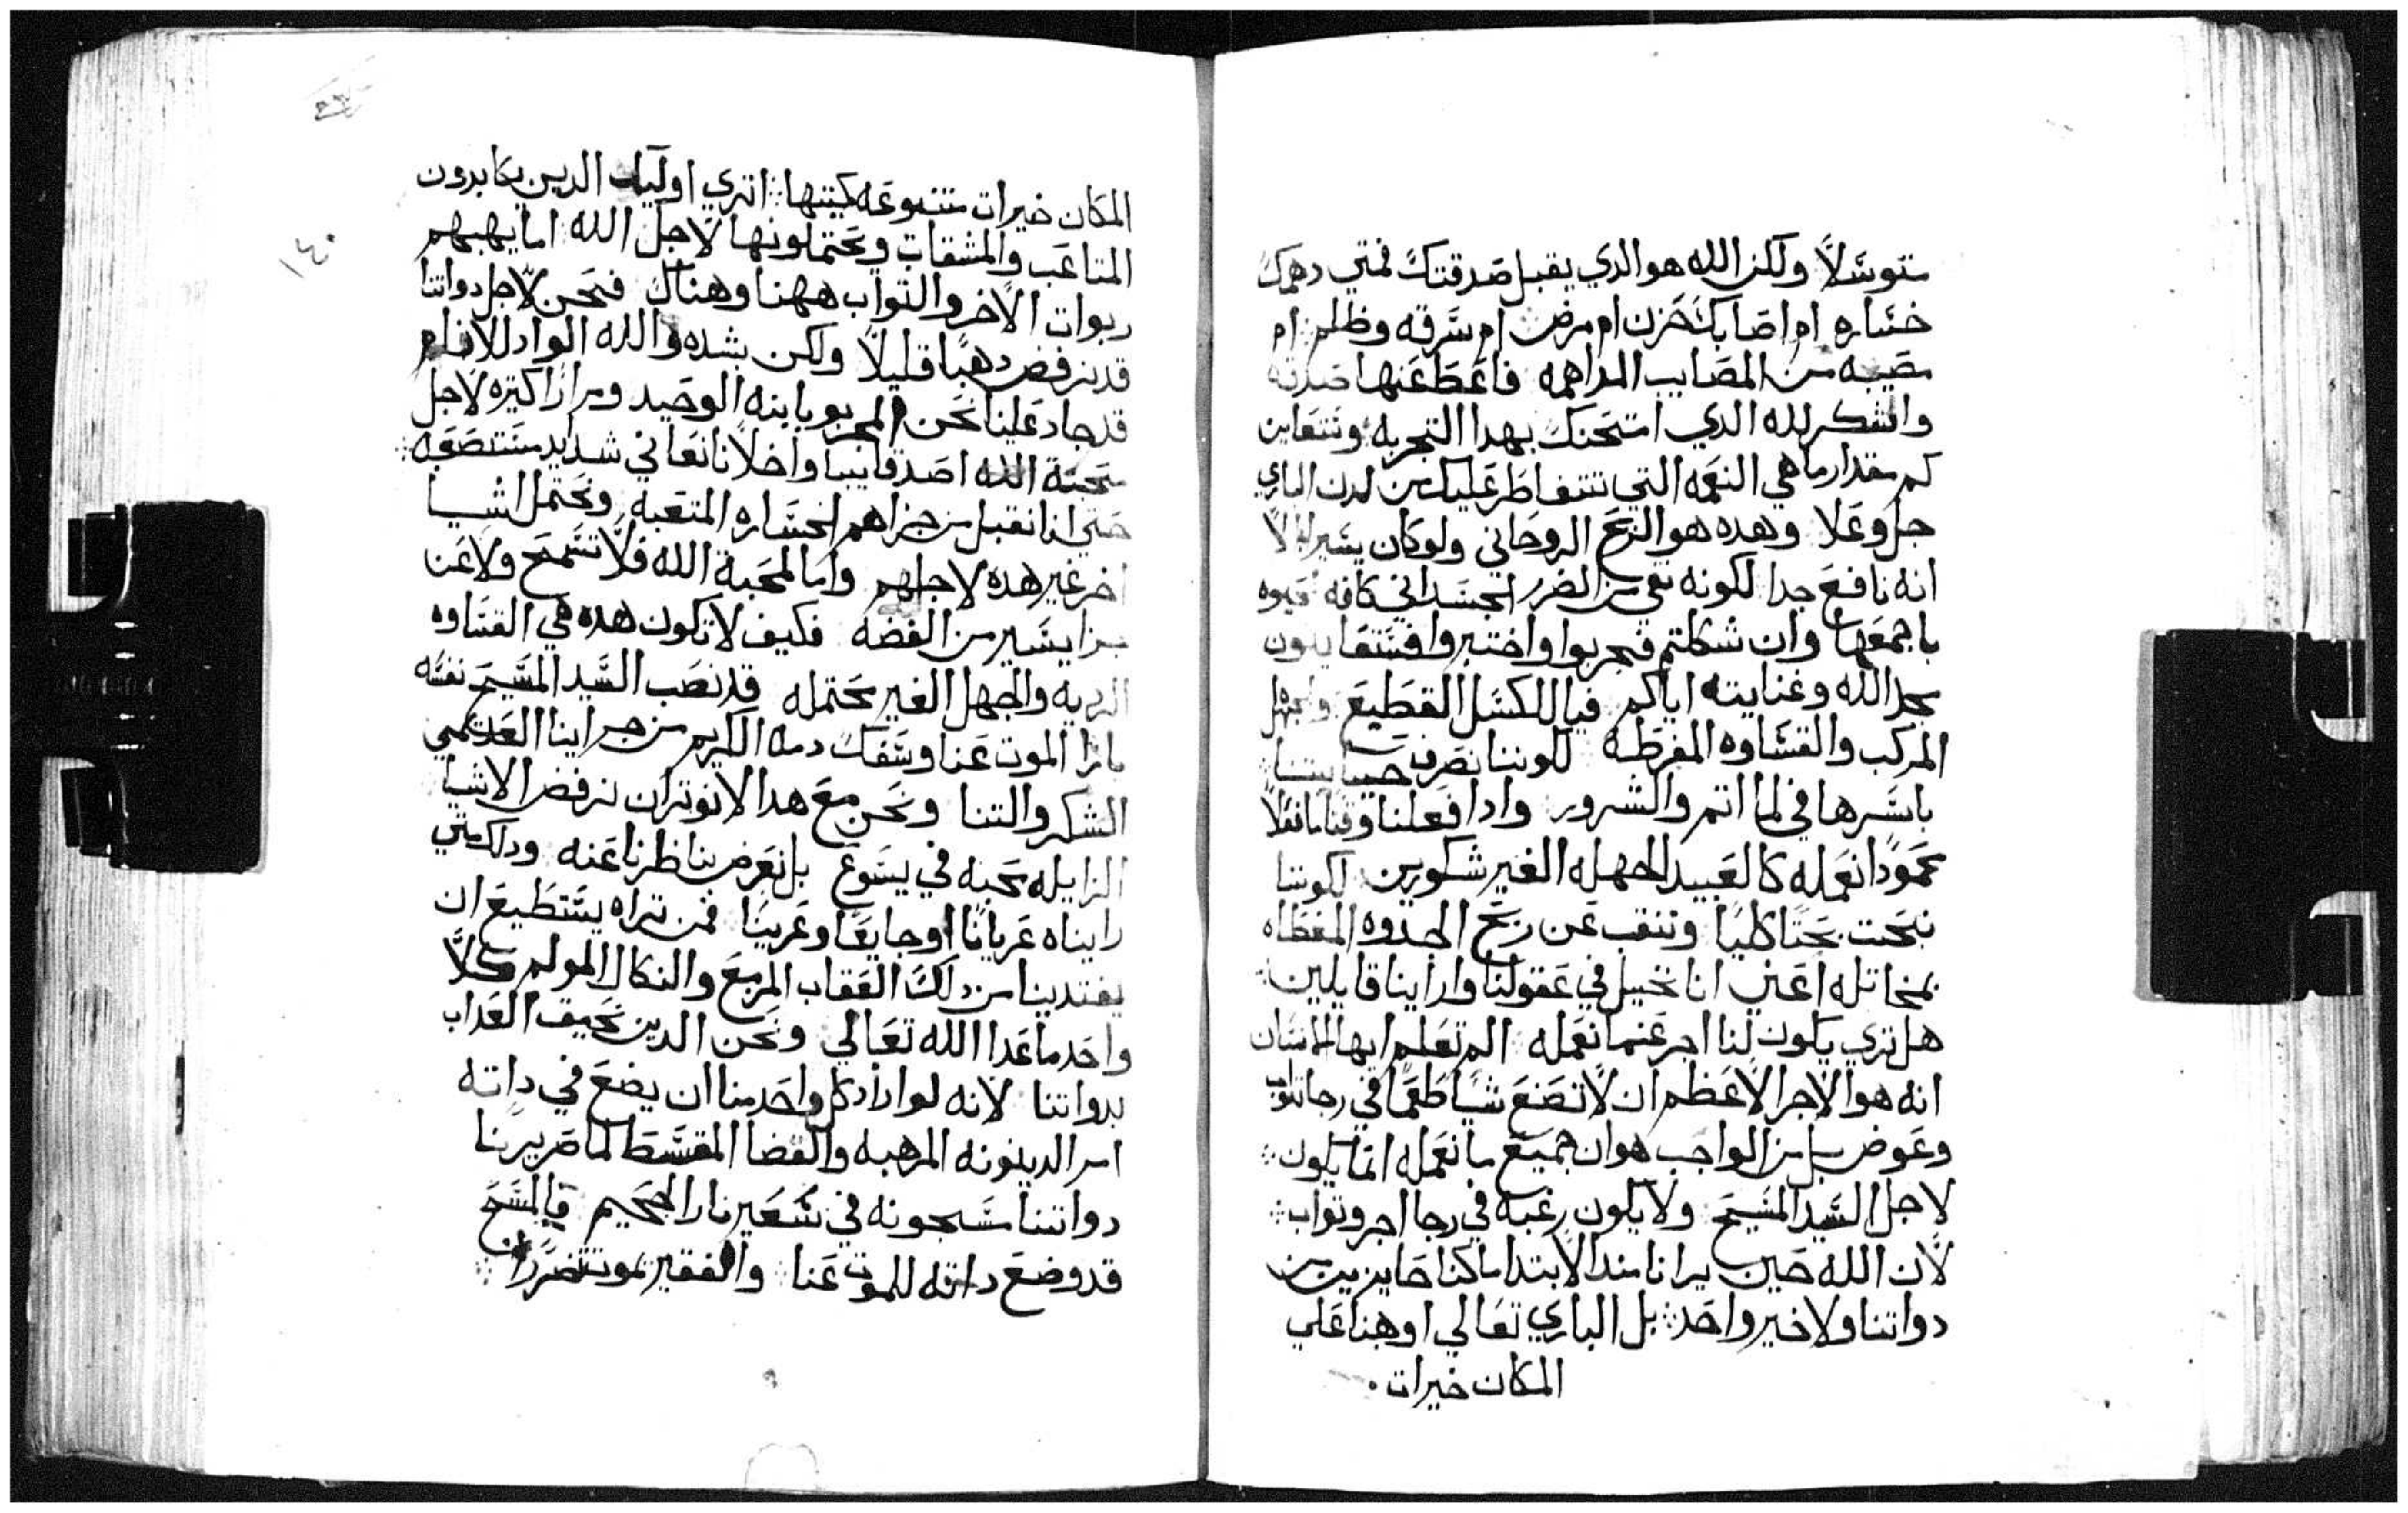 متوسلاً ولكن الله هو الدي يقبل صدقتك فمتي دهمك
خساره ام اصابك حزن ام مرض ام سرقه وظلم ام
مصيبه من المصايب المداهمه فاعط عنها صدقه
واشكر لله الدي امتحنك بهدا التجربه وتتعاين
كم مقدار ما هي النعمه التي تتقاطر عليك من لدن الباري
جل وعلا وهده هو الربح الروحاني ولو كان يسير الا
انه نافع جدا لكونه يقي من الضرر الجسداني كافه
باجمعها وان شككتم فجربوا واختبروا فستعاينون
مجد الله وعنايته اياكم فيا للكسل القطيع والجهل
المركب والقساوه المفرطه لكوننا نصرف حياتنا
باسرها في المااتم والشرور وادا فعلنا وقتاً ما فعلاً
محموداً نعمله كالعبيد الجهله الغير شكورين لكوننا
نبحت بحتا كلياً وننقب عن ربح الجدوه المغطاه
بمخاتله اعني انا نخيل في عقولنا واراينا قايلين
هل تري يكون لنا اجر عنما نعمله الم تعلم ايها الانسان
انه هو الاجر الاعظم ان لا تصنع شياً طمعاً في رجا تواب
وعوض بل من الواجب هو ان جميع ما نعمله انما يكون
لاجل السيد المسيح ولا يكون رغبه في رجا اجر وتواب
لان الله حين يرانا مند الابتدا ما كنا حايزين من
دواتنا ولا خير واحد بل الباري تعالي اوهبنا علي
المكان خيرات
١٤٠
المكان خيرات متنوعه كيتنها اتري اوليك الدين يكابدون
المتاعب والمشقات ويحتملونها لاجل الله اما يهبهم
ربوات الاجر والتواب ههنا وهناك فنحن لاجل دواتنا
قد نرفض دهباً قليلاً ولكن بشده والله الواد للانام
قد جاد علينا نحن المجربو بابنه الوحيد ومراراً كتيره لاجل
محبة الله اصدقاينا واخلانا نعاني شدايد مستصعبه
حتي اننا نقبل من جراهم الخساره المتعبه ونحتمل اشيا
اخر غير هده لاجلهم واما لمحبة الله فلا تسمح ولا عن
جزا يسير من الفضه فكيف لا تكون هده هي القساوه
الرديه والجهل الغير محتمله قد نصب السيد المسيح نفسه
بازا الموت عنا وسفك دمه الكريم من جراينا العديمي
الشكر والتنا ونحن مع هدا لا نوتر ان نرفض الاشيا
الزايله محبه في يسوع بل نعرض بناظرنا عنه ودلك متي
رايناه عرياناً او جايعاً وغريباً فمن تراه يستطيع ان
يفتدينا من دلك العقاب المريع والنكال المولم كلاً
واحد ما عدا الله تعالي ونحن الدين نحيق العداب
بدواتنا لانه لو اراد كل واحد منا ان يضع في داته
امر الدينونه المرهبه والقضا المقسط لما صر يرنا
دواتنا مسجونه في سعير نار الجحيم فالمسيح
قد وضع داته للموت عنا والفقير يموت تضرراً